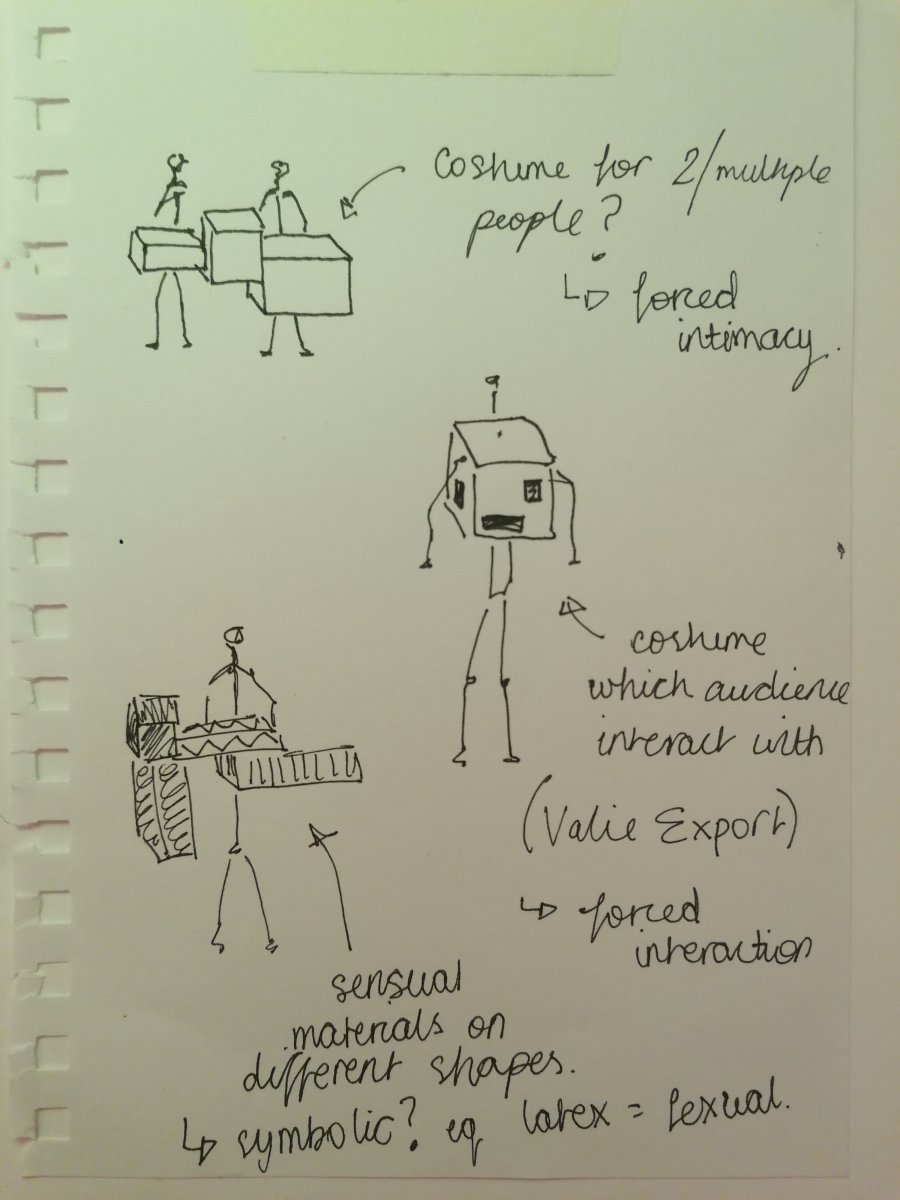 costume for 2/multiple
people?
↳ forced
intimacy.
costume
which audience
interact with
(Valie Export)
↳ forced
interaction
sensual
materials on
different shapes.
↳ symbolic? eg latex = sexual.